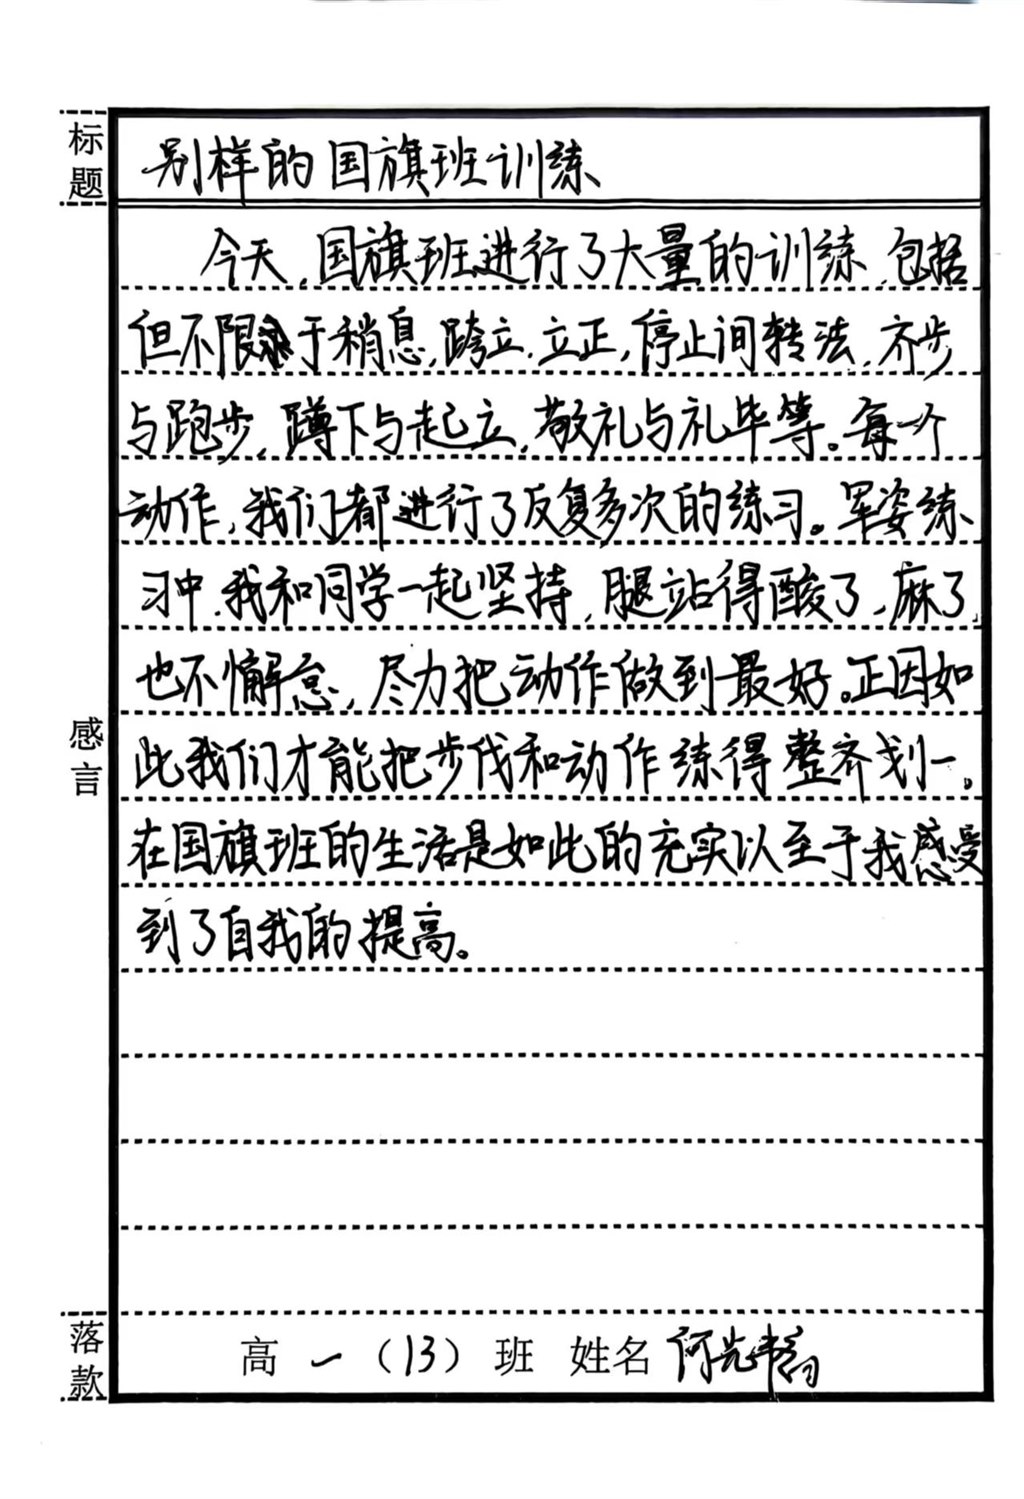 标题
别样的国旗班训练
今天,国旗班进行了大量的训练,包括
但不限于稍息,跨立,立正,停止间转法,齐步
与跑步,蹲下与起立,敬礼与礼毕等。每一个
动作,我们都进行了反复多次的练习。军姿练
习中,我和同学一起坚持,腿站得酸了,麻了,
也不懈怠,尽力把动作做到最好。正因如
感言
此我们才能把步伐和动作练得整齐划一。
在国旗班的生活是如此的充实以至于我感受
到了自我的提高。
落款
高一(13)班 姓名 何先